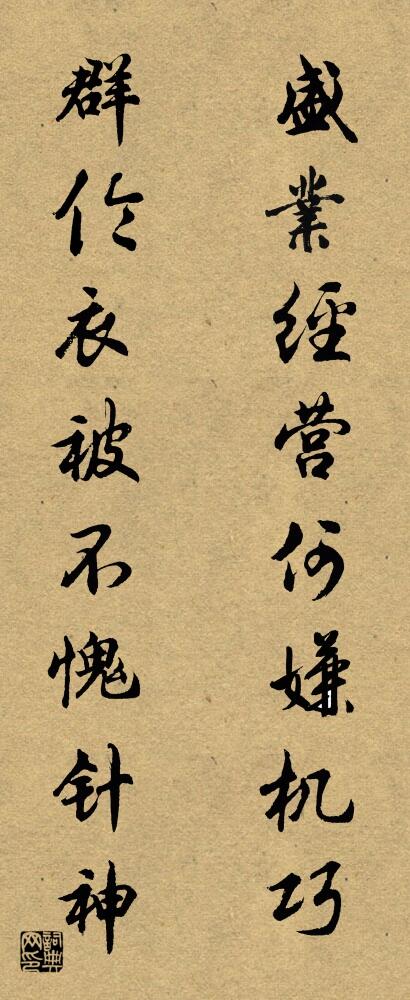 盛業經营何嫌机巧
群伦衣被不愧针神
詞典
网印